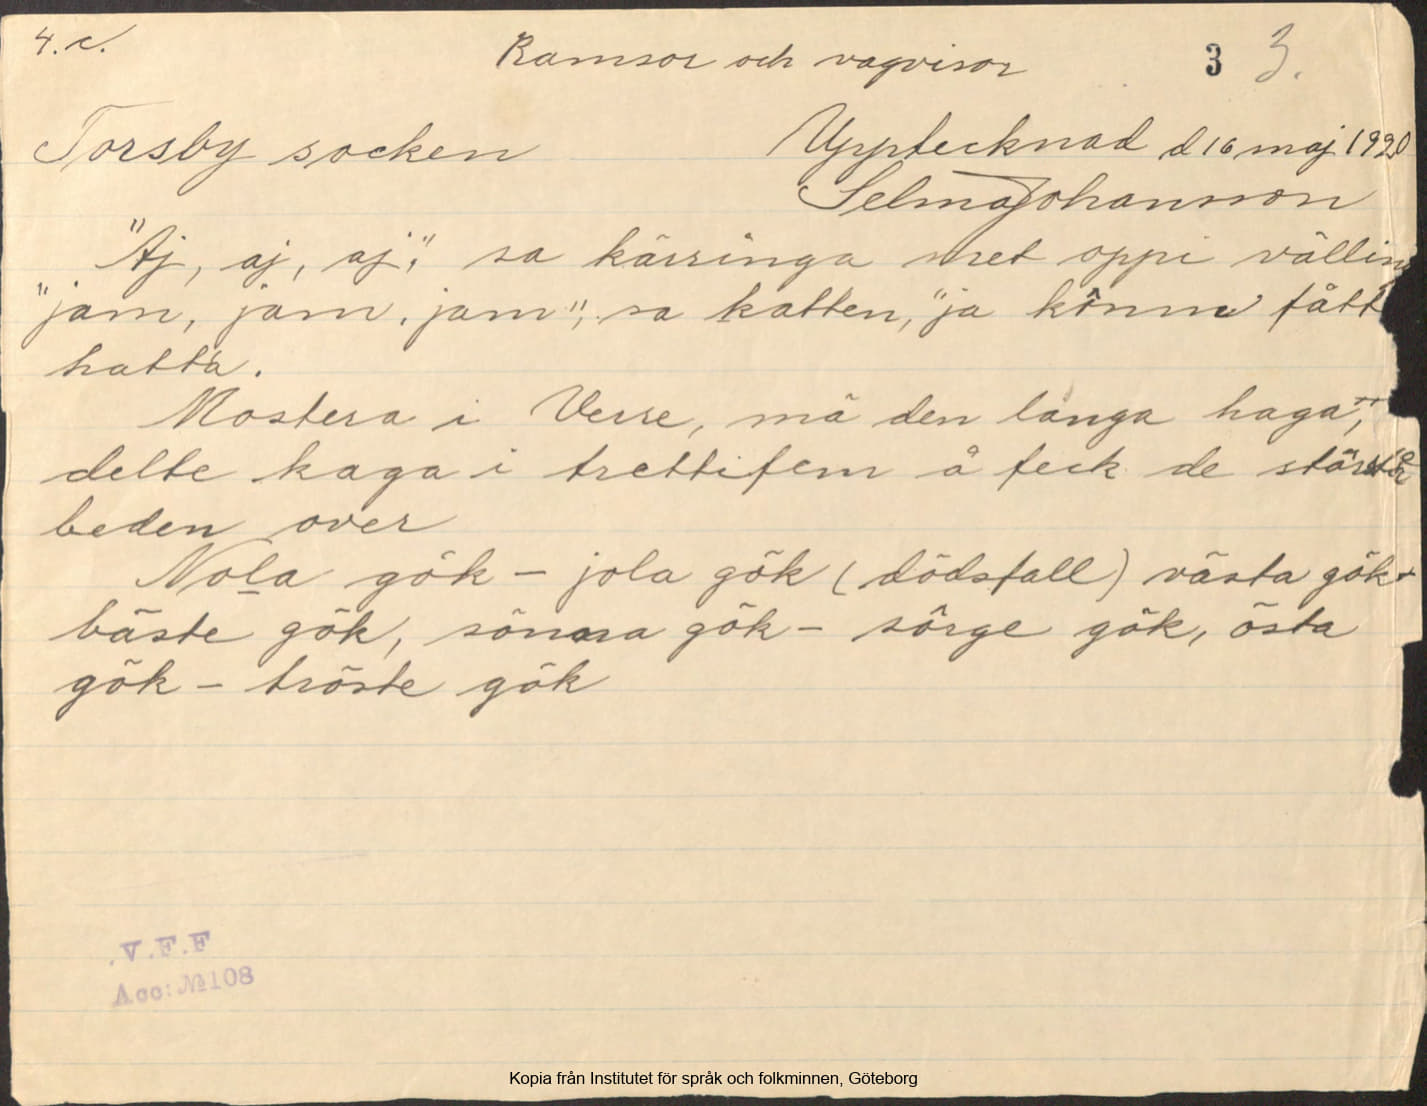 4. c.
Ramsor och vagvisor 3 3.
Torsby socken Upptecknad d 16 maj 1920
Selma Johansson
"Aj, aj, aj", sa kärringa oppi välling
"jam, jam, jam", sa katten, "ja fått
hatta.
Mostera i Verre, mä den långa haga,
delte kaga i trettifem å feck de
beden over
Nola gök – jola gök (dödsfall) västa gök –
bäste gök, sönnra gök – sôrge gök, östa
gök – tröste gök
.V.F.F
Acc: №108
Kopia från Institutet för språk och folkminnen, Göteborg